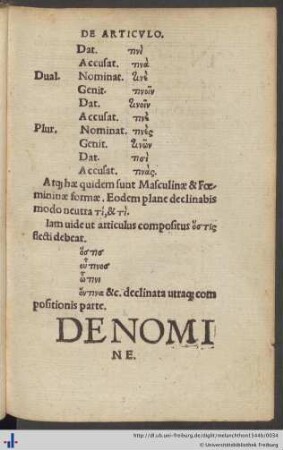 DE ARTICVLO.
Dat. τινὶ
Accusat. τινὰ
Dual. Nominat. τινὲ
Genit. τινοῖν
Dat. τινοῖν
Accusat. τινὲ
Plur. Nominat. τινὲς
Genit. τινῶν
Dat. τισὶ
Accusat. τινάς.
Atq; hæ quidem sunt Masculinæ & Fœ-
mininæ formæ. Eodem plane declinabis
modo neutra τί, & τὶ.
Iam uide ut articulus compositus ὅστις
flecti debeat.
ὅστισ
οὗτινοσ
ᾧτινι
ὅντινα &c. declinata utraq; com
positionis parte.
DE NOMI
NE.
© Universitätsbibliothek Freiburg